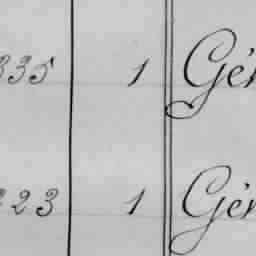 335 1 Gén
223 1 Gén